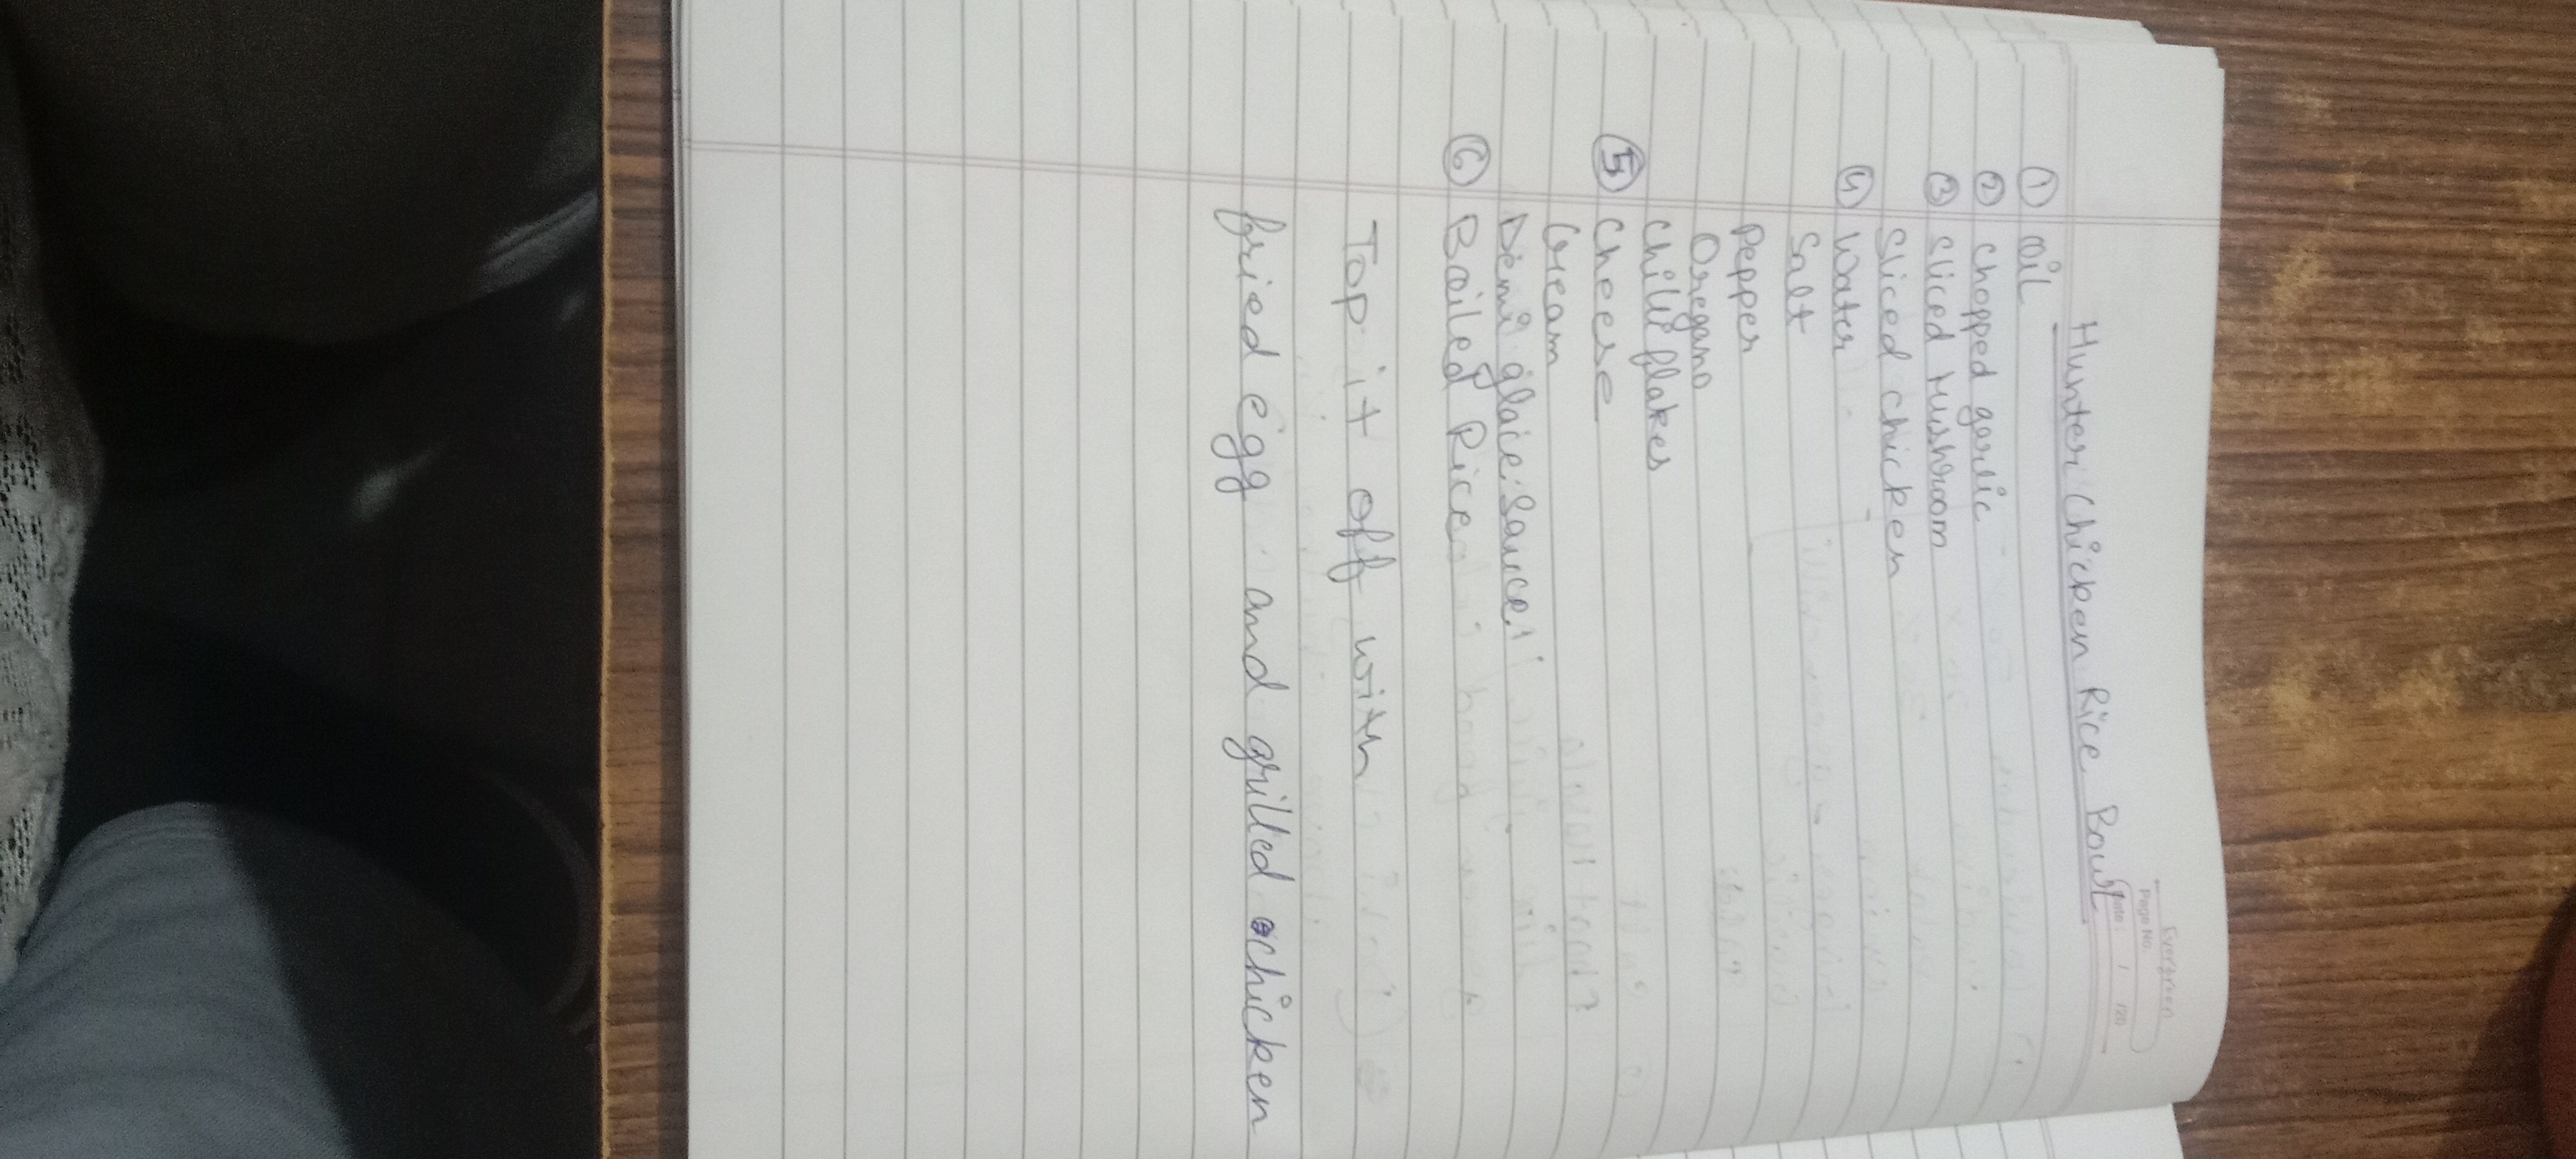 Evergreen
Page No.
Date: / /20
Hunter Chicken Rice Bowl
① Oil
② Chopped garlic
③ Sliced Mushroom
Sliced chicken
④ Water
Salt
Pepper
Oregano
Chilli flakes
⑤ Cheese
Cream
Demi glace sauce
⑥ Boiled Rice
Top it off with
fried egg and grilled chicken